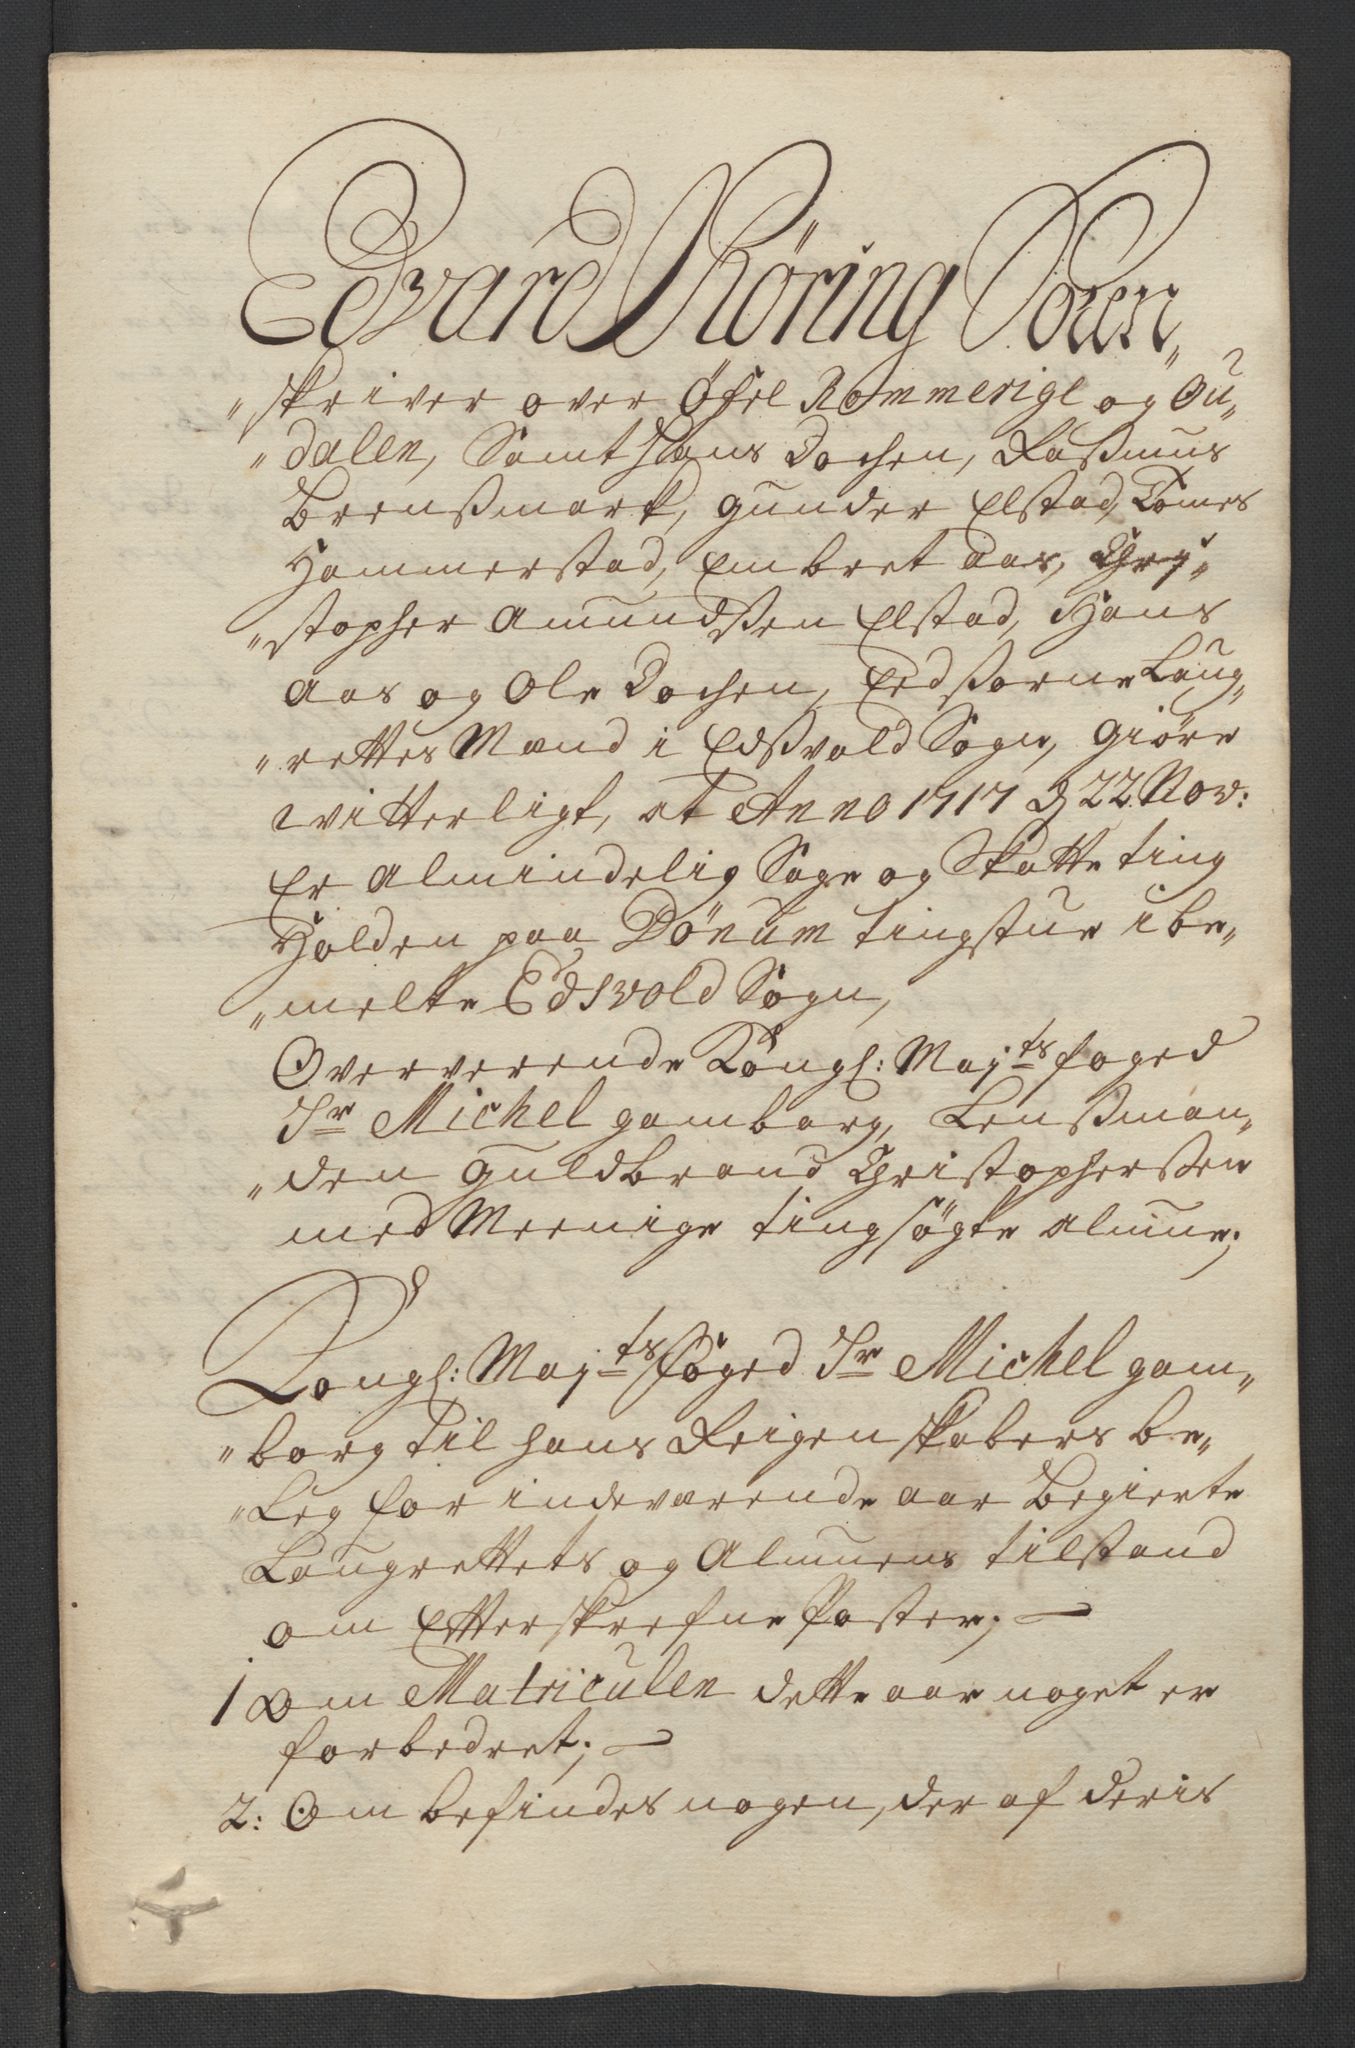 Edvard Röring Soren„
„skriver over Öfre Rommerige og Gu„
„dalen, Samt Hans Dochen, Rasmus
Brensmark, Gunder Elstad, Tomes
Hammerstad, Embret Aas, Chri„
„stopher Amundsen Elstad, Hans
Aas og Ole Dochen, Eedsorne Laug„
„rettes Mænd i Edsvold Sogn, giöre
witterligt, at Anno 1717 d 22. Nov:
Er Almindelig Sage og Skatte ting
Holden paa Dönum tingstue i be„
„melte Edsvold Sogn,
Oververende Kongl: Maj:ts foged
Sr Michel Gamborg, Lensman„
„den Guldbrand Christophersen
med Meenige tingsögte almue;
Kongl: Maj:ts foged Sr Michel gam„
„borg til hans Reigenskabers be„
„leg for indeværende aar begierte
Laugrettets og Almuens tilstand
om Efterskrefne Poster;
1 Om Matriculen dette aar noget er
forbedret;
2: Om befindes nogen, der af deris